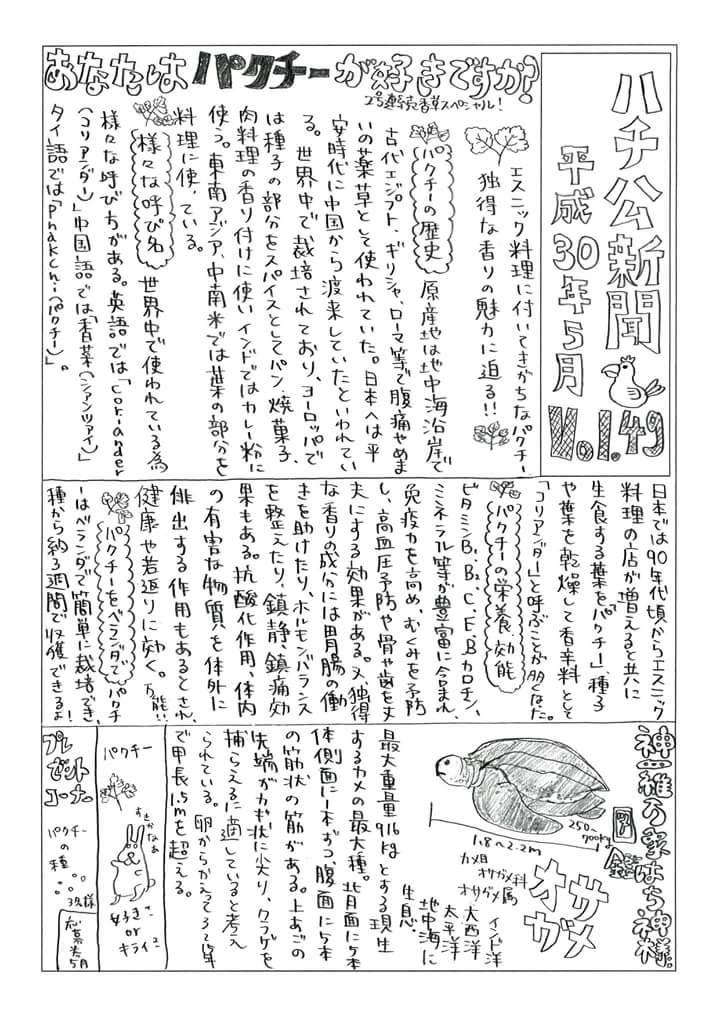 ハチ公新聞
平成30年5月
Vol.49
あなたはパクチーが好きですか?
2号連続香草スペシャル!
エスニック料理に付いてきがちなパクチー、
独得な香りの魅力に迫る!!
パクチーの歴史 原産地は地中海沿岸で
古代エジプト、ギリシャ、ローマ等で腹痛やめま
いの薬草として使われていた。日本へは平
安時代に中国から渡来していたといわれてい
る。世界中で栽培されており、ヨーロッパで
は種子の部分をスパイスとしてパン、焼菓子、
肉料理の香り付けに使いインドではカレー粉に
使う。東南アジア、中南米では葉の部分を
料理に使っている。
様々な呼び名 世界中で使われている為
様々な呼び方がある。英語では「coriander
(コリアンダー)」中国語では「香菜(シァンツァイ)」
タイ語では「Phakchi(パクチー)」。
日本では90年代頃からエスニック
料理の店が増えると共に
生食する葉を「パクチー」、種子
や葉を乾燥して香辛料として
「コリアンダー」と呼ぶことが多くなった。
パクチーの栄養、効能
ビタミンB₁、B₂、C、E、Bカロチン、
ミネラル等が豊富に含まれ、
免疫力を高め、むくみを予防
し、高血圧予防や骨や歯を丈
夫にする効果がある。又、独得
な香りの成分には胃腸の働
きを助けたり、ホルモンバランス
を整えたり、鎮静、鎮痛効
果もある。抗酸化作用、体内
の有害な物質を体外に
俳出する作用もあるとされ、
健康や若返りに効く。万能!!
パクチーをベランダで パクチ
ーはベランダで簡単に栽培でき、
種から約3週間で収穫できるよ!
神一雅の家はち神様。
図鑑
オサガメ
250~700kg
1.8~2.2m
カメ目
オサガメ科
オサガメ属
インド洋
大西洋
太平洋
地中海に
生息。
最大重量916kgとする現生
するカメの最大種。背面に5本
体側面に1本ずつ、腹面に5本
の筋状の筋がある。上あごの
先端がカギ状に尖り、クラゲを
捕らえるに適していると考え
られている。卵からかえって3~15年
で甲長1.5mを超える。
パクチー
すきかなぁ
好き?
or
キライ?
プレゼントコーナー
パクチーの種
3名様
応募券5月